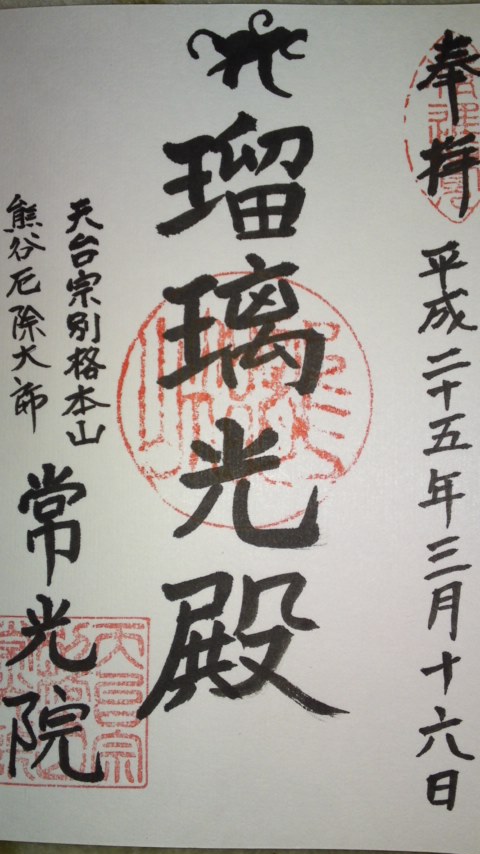 奉拝
平成二十五年三月十六日
瑠璃光殿
天台宗別格本山
熊谷厄除大師
常光院